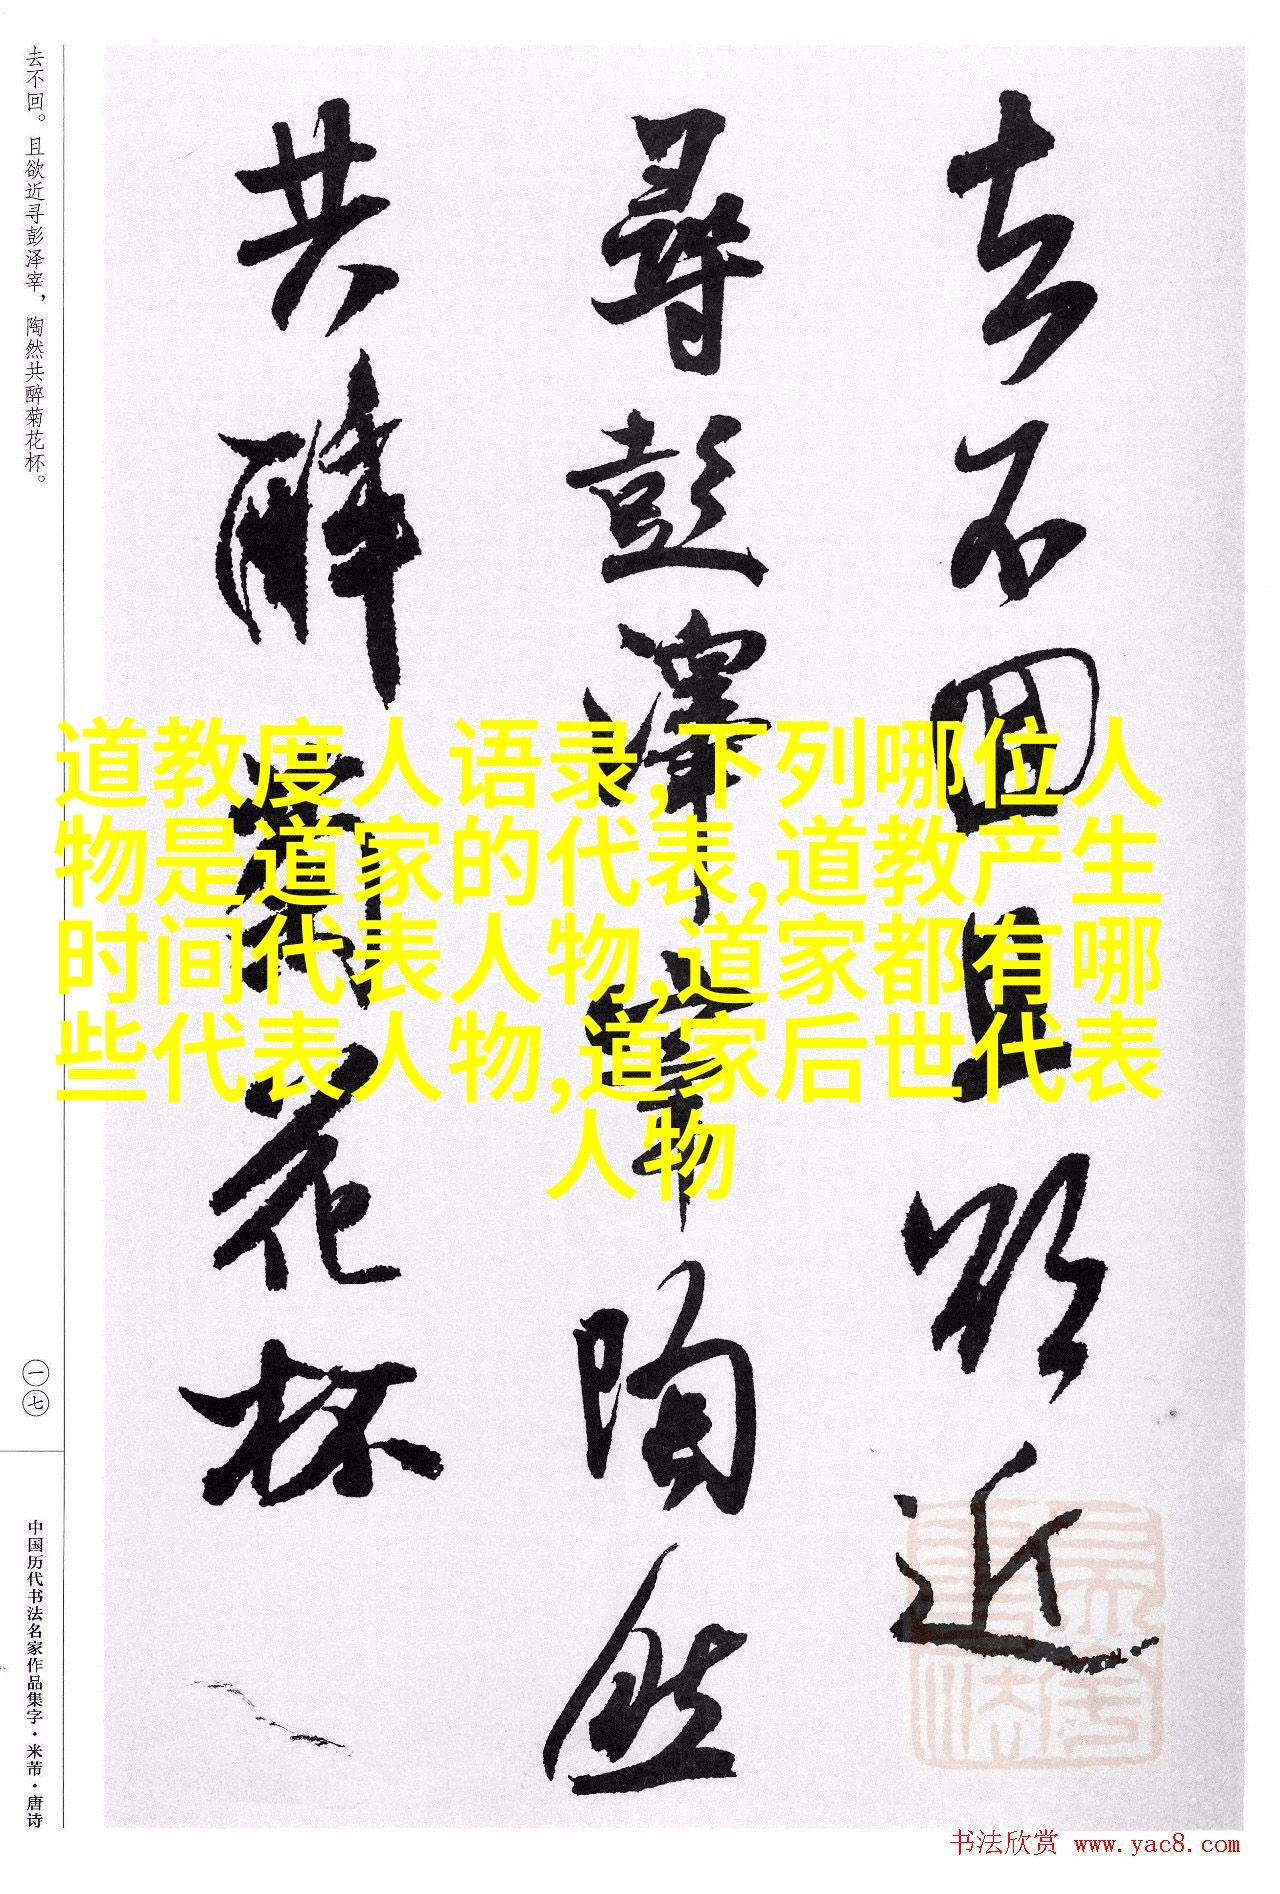 去不回。且欲近寻彭泽宰，陶然共醉菊花杯。
一七
中国历代书法名家作品集字·米芾·唐诗
去不回且欲近
尋彭澤宰陶然
共醉菊花杯
道教度人语录,下列哪位人
物是道家的代表,道教产生
时间代表人物,道家都有哪
些代表人物,道家后世代表
人物
书法欣赏 www.yac8.com